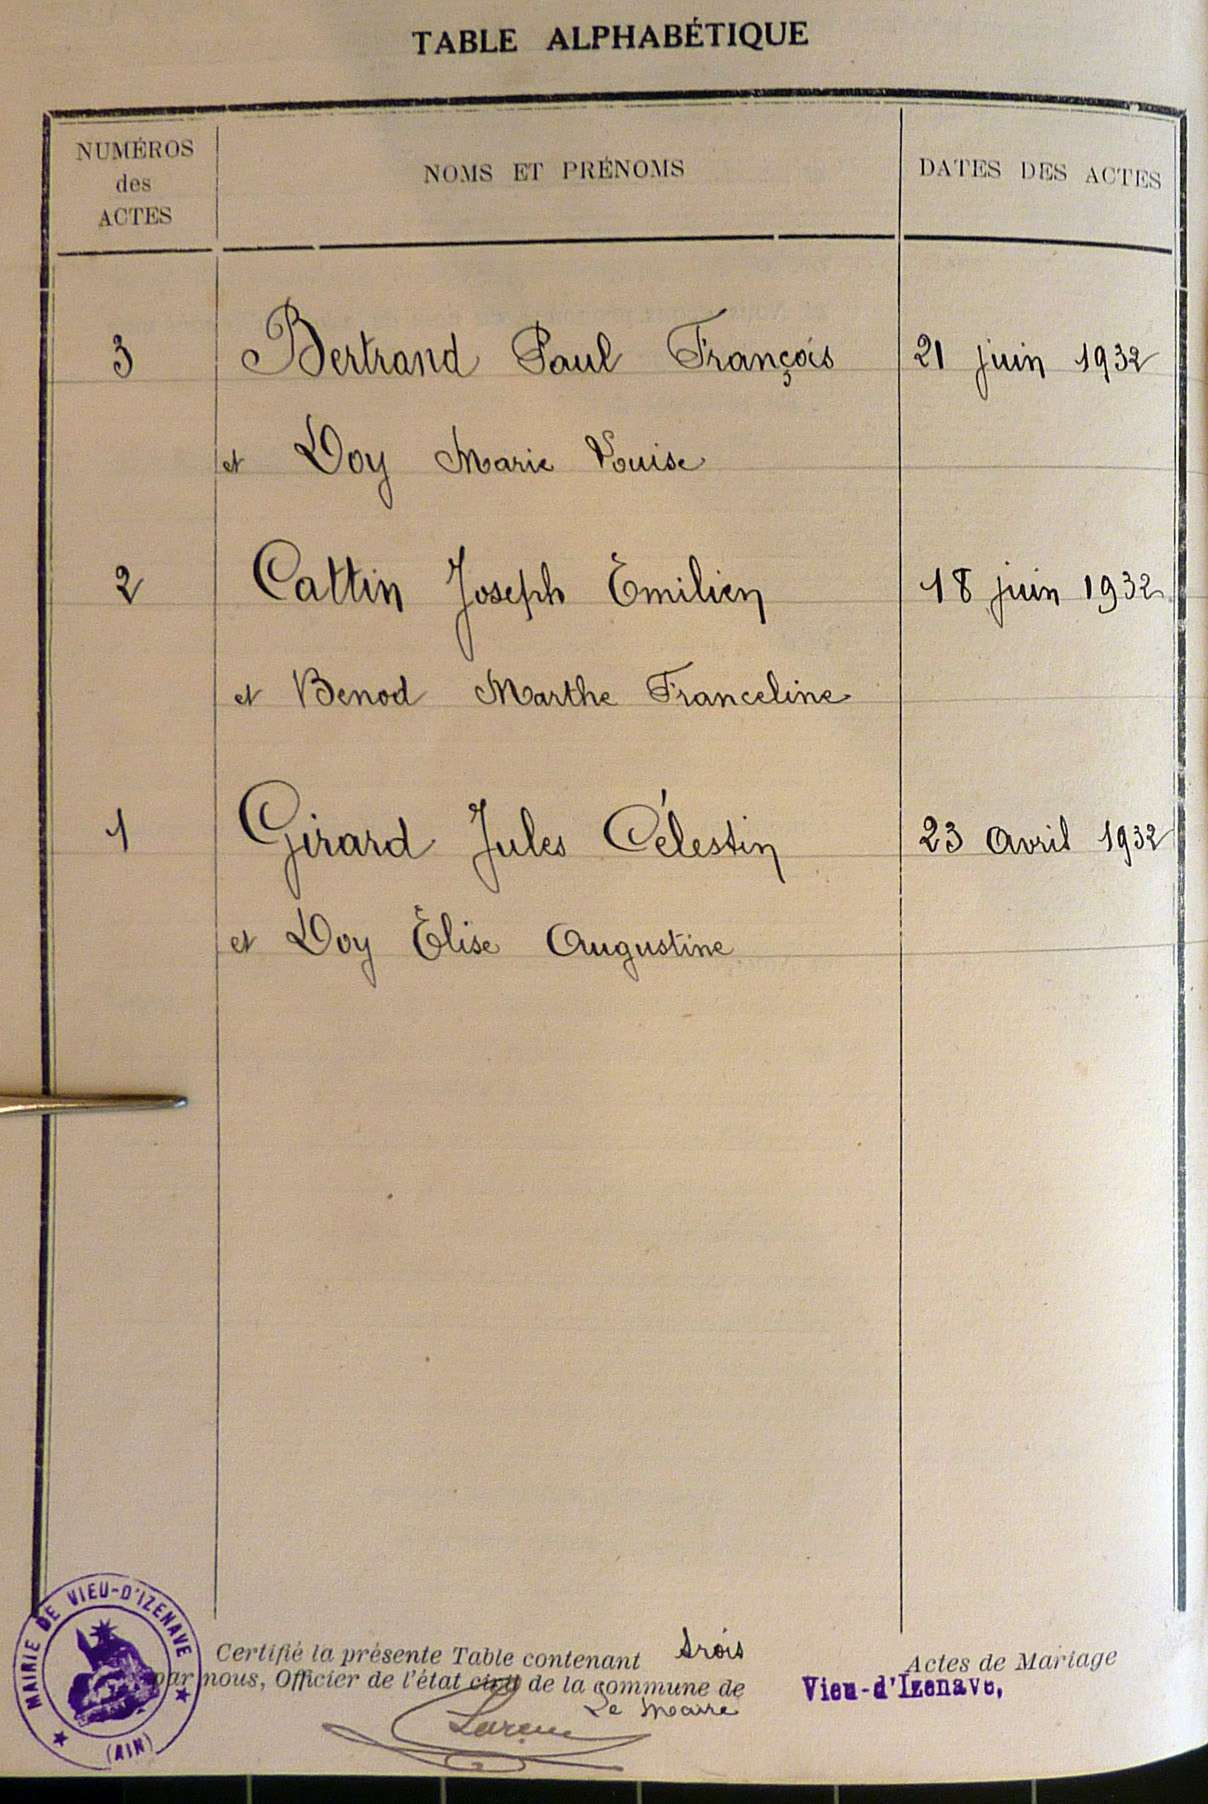 TABLE ALPHABÉTIQUE
NUMÉROS
des
ACTES
NOMS ET PRÉNOMS
DATES DES ACTES
3 Bertrand Paul François 21 juin 1932
et Doy Marie Louise
2 Cattin Joseph Émilien 18 juin 1932
et Benod Marthe Franceline
1 Girard Jules Célestin 23 avril 1932
et Doy Élise Augustine
Certifié la présente Table contenant trois Actes de Mariage
par nous, Officier de l'état civil de la commune de Vieu-d'Izenave,
Le Maire
MAIRIE DE VIEU-D'IZENAVE
(AIN)